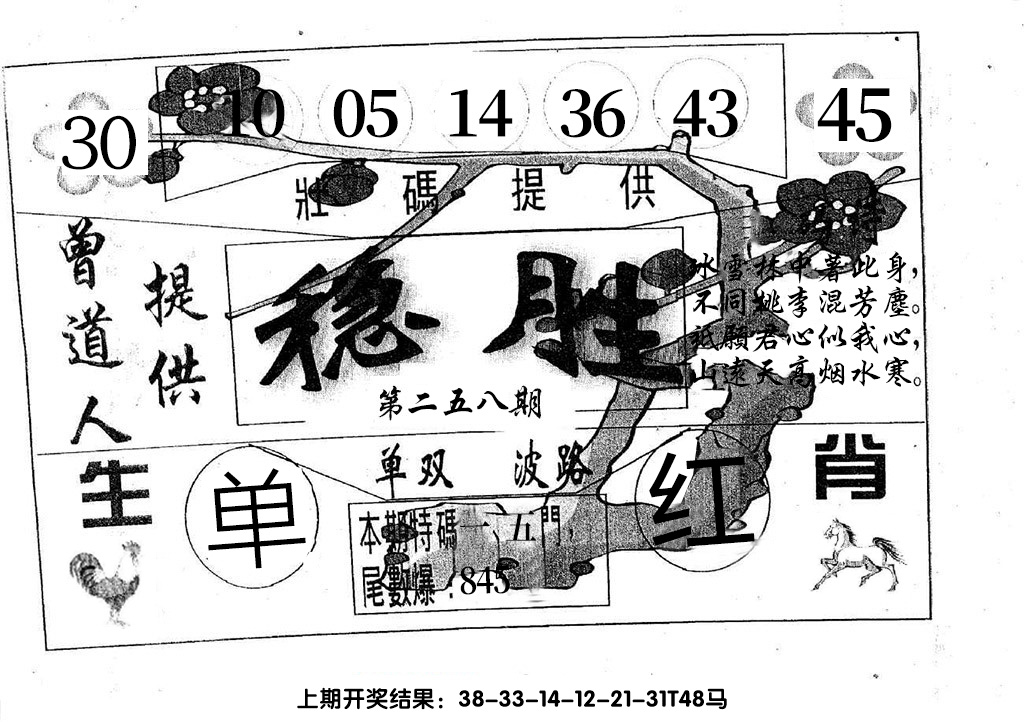 30 10 05 14 36 43 45
壯碼提供
曾道人
提供
稳胜
第二五八期
冰雪林中著此身，
不同桃李混芳塵。
祗願君心似我心，
山遠天高烟水寒。
单双 波路
生肖
单
红
本期特碼一、五門，
尾數爆：845
上期开奖结果：38-33-14-12-21-31T48马